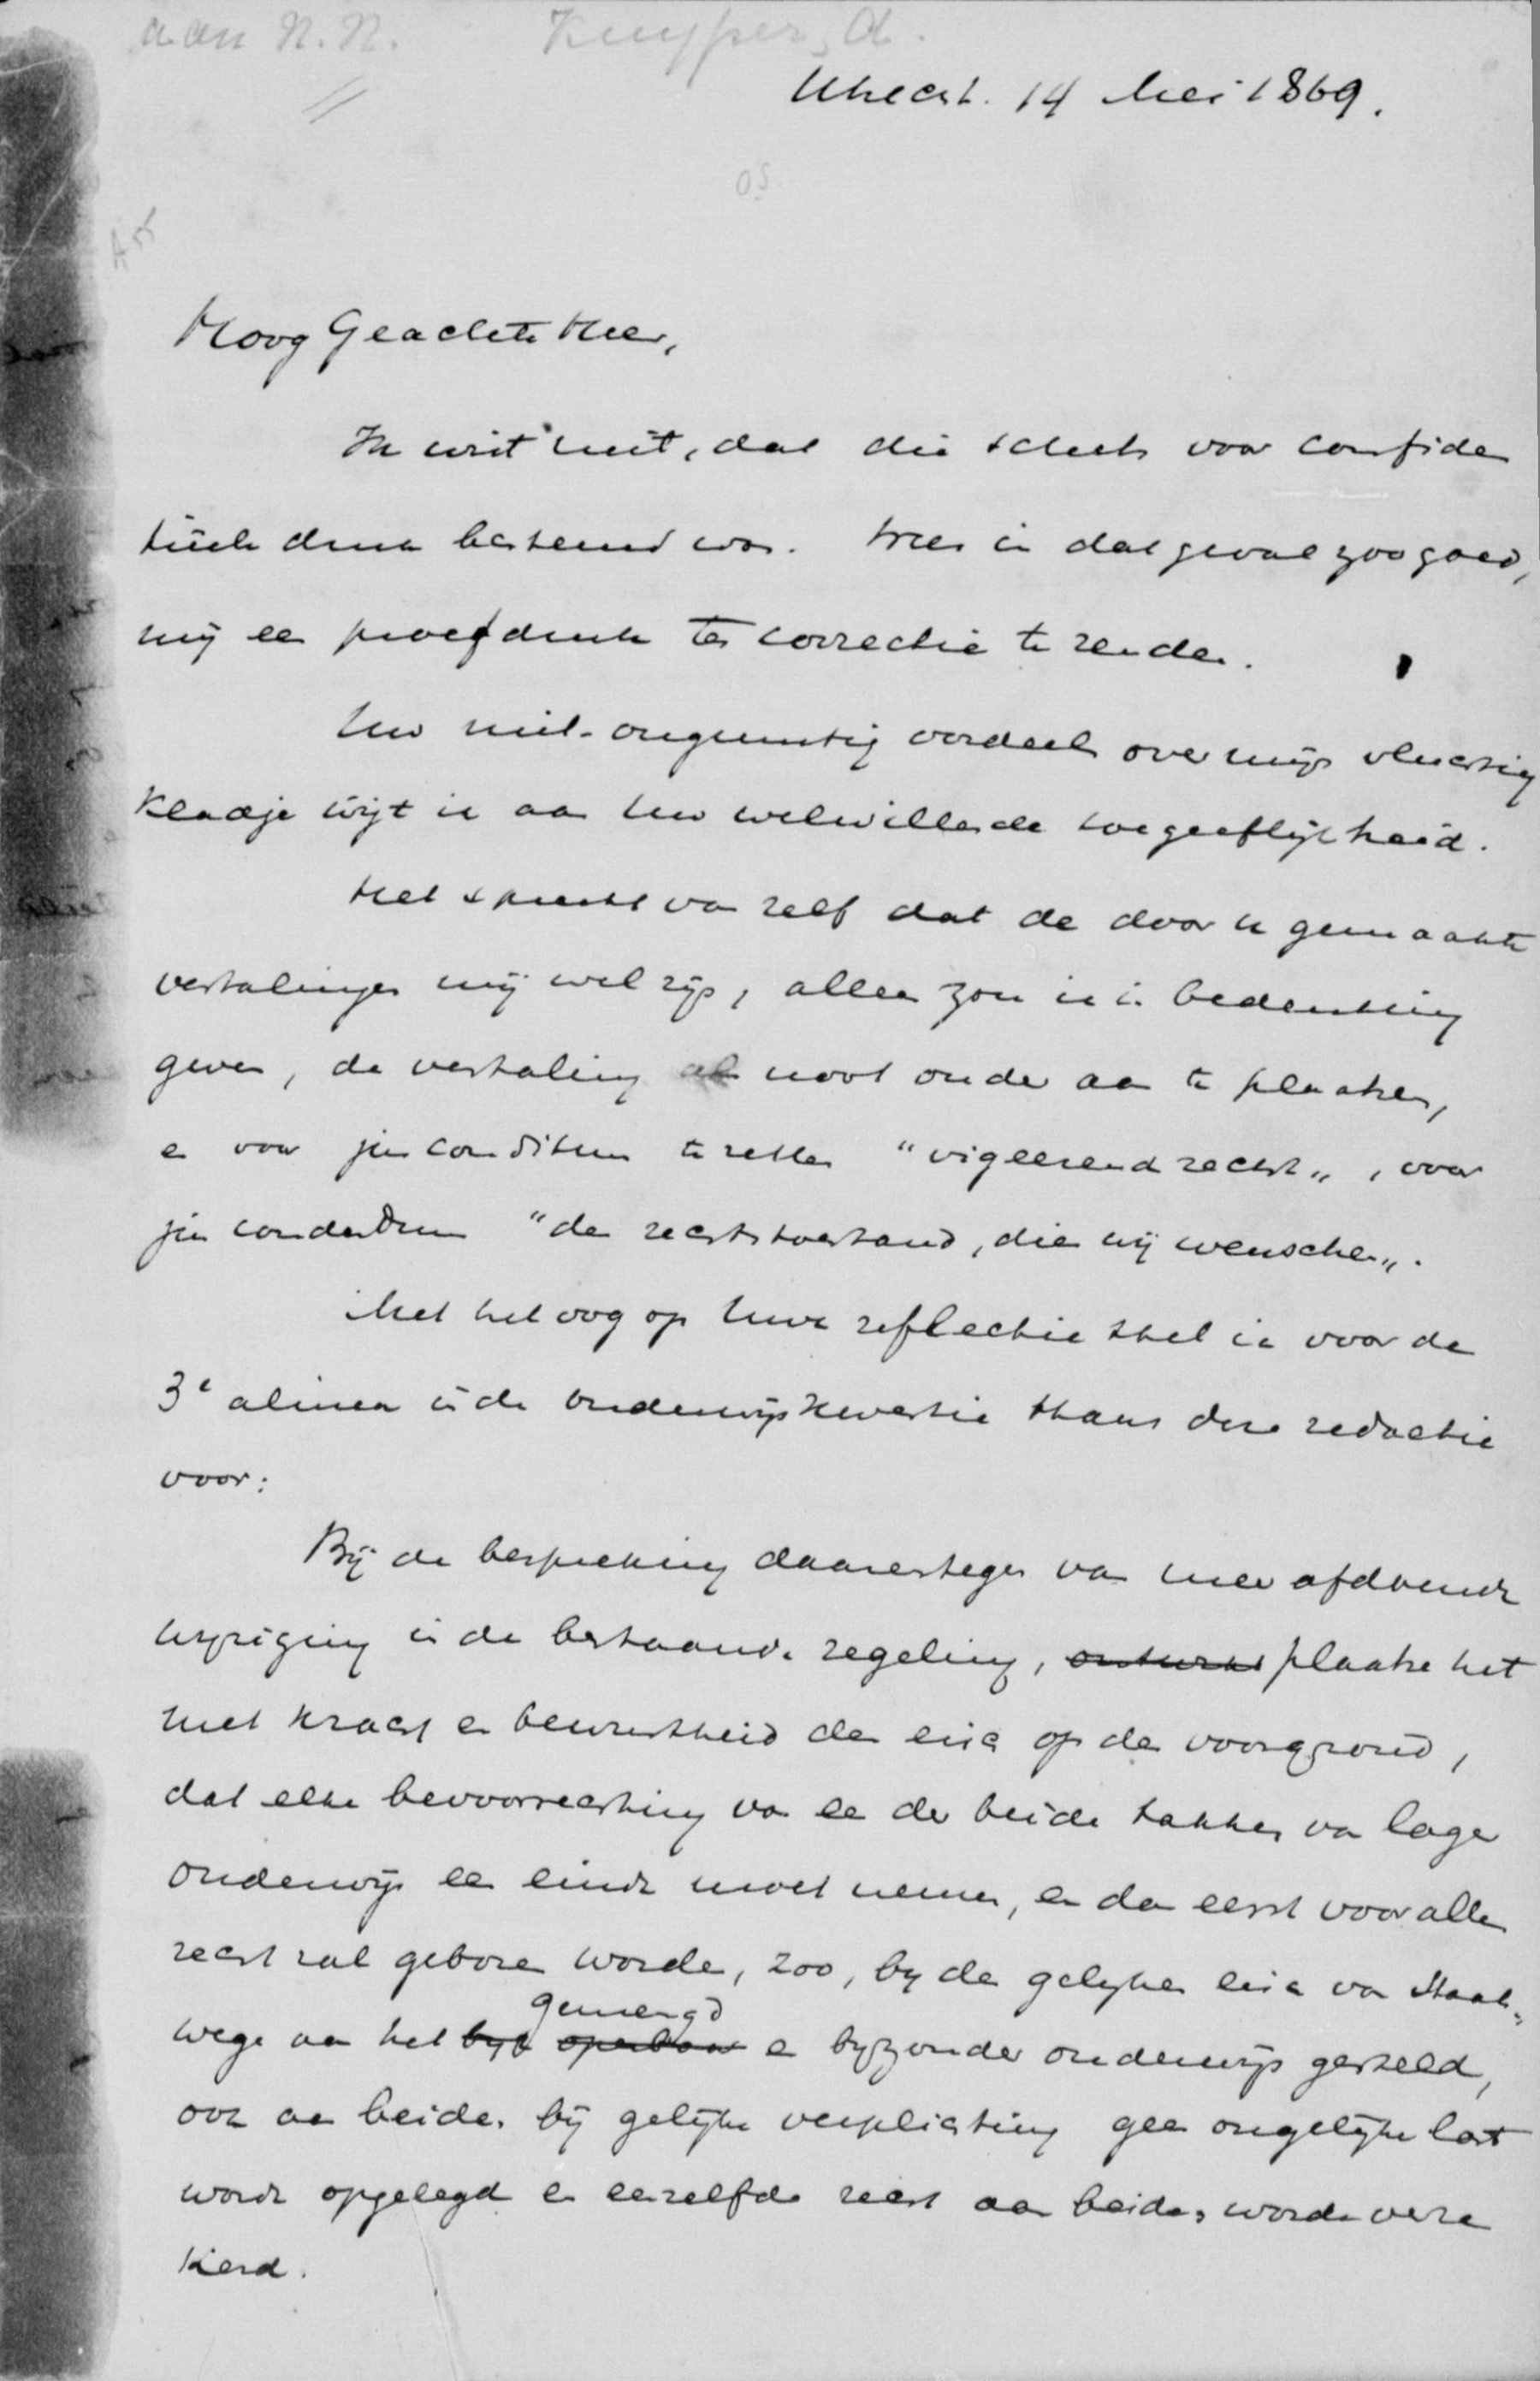 aan N.N. Kuyper, A.
Utrecht. 14 Mei 1869.
05
Hoog Geachte Heer,
Ik wist niet, dat die schets voor confiden
tieele druk bestemd was. Wees in dat geval zoo goed,
mij een proefdruk ter correctie te zenden.
Uw niet-ongunstig oordeel over mijn vluchtig
kladje wijt ik aan Uw welwillende toegeeflijkheid.
Het spreekt van zelf dat de door U gemaakte
vertalingen mij wel zijn, alleen zou ik in bedenking
geven, de vertaling als noot onder aan te plaatsen,
en voor jus conditum te zetten "vigeerend recht", voor
jus condendum "de rechtstoestand, die wij wenschen".
Met het oog op Uwe reflectie stel ik voor de
3e alinea in de onderwijskwestie thans deze redactie
voor:
Bij de bespreking daarentegen van meer afdoende
wijziging in de bestaande regeling, plaatse het
met kracht en bewustheid den eisch op den voorgrond,
dat elke bevoorrechting van een der beide takken van lager
onderwijs een einde moet nemen, en dan eerst voor allen
recht zal geboren worden, zoo, by de gelyken eisch van Staats-
wege aan het gemengd en byzonder onderwijs gesteld,
ook aan beiden bij gelijke verplichting geen ongelijke last
worde opgelegd en eenzelfde recht aan beiden worde verze
kerd.